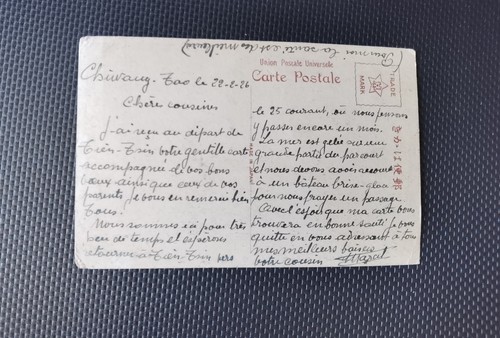 (Pour moi la santé est des meilleures)
Union Postale Universelle
Carte Postale
TRADE
MARK
きがは便郵
Chinwang-Tao le 22-2-26
Chère cousine
J'ai reçu au départ de
Tién-Tsin votre gentille carte
accompagnée de vos bons
vœux ainsi que ceux de vos
parents, je vous en remercie bien
tous!
Nous sommes ici pour très
peu de temps et espérons
retourner à Tién-Tsin vers
le 25 courant, où nous pensons
y passer encore un mois.
La mer est gelée sur une
grande partie du parcourt
et nous devons avoir recours
à un bâteau brise-glace
pour nous frayer un passage
Avec l'espoir que ma carte vous
trouvera en bonne santé je vous
quitte en vous adressant à tous
mes meilleurs baisers
votre cousin